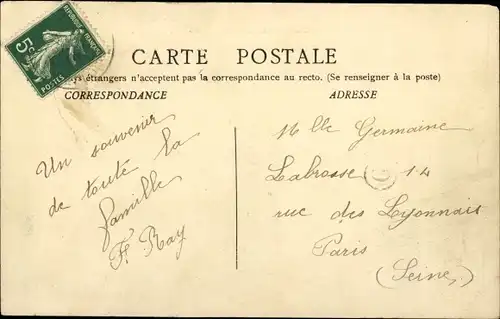 RÉPUBLIQUE FRANÇAISE
5c
POSTES
CARTE POSTALE
ys étrangers n'acceptent pas la correspondance au recto. (Se renseigner à la poste)
CORRESPONDANCE
ADRESSE
Un souvenir
de toute la
famille
F. Ray
Mlle Germaine
Labrosse 14
rue des Lyonnais
Paris
(Seine)